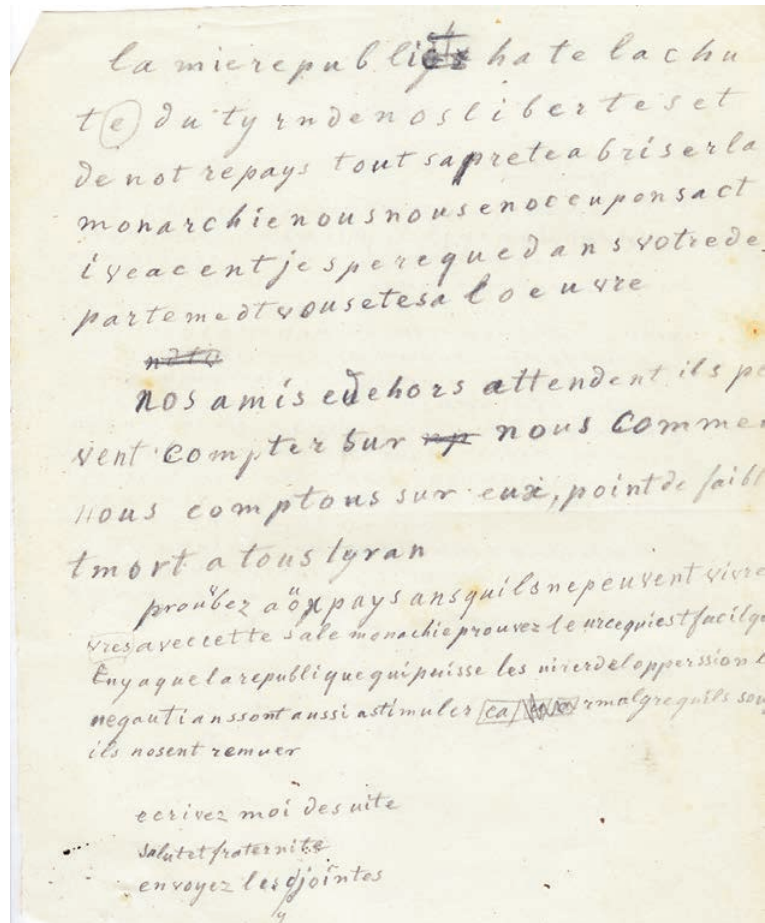 la mierepubli hate lachu
te du tyrndenosliberteset
denotrepays toutsapreteabriserla
monarchienousnousenoccuponsact
iveacentjesperequedans votrede
partemedtvousetesa loeuvre
nos amis eudehors attendent ils pe
vent compter sur nous comme
nous comptons sur eux, point de faibl
tmort a tous tyran
prouvez aox paysansquilsnepeuvent vivre
vres aveccette sale monachieprouvez leurcequiest facilqu
Enyaquelarepubliquequipuisse les nirerdelopperssion
negautianssontaussi astimuler ca rmalgrequils sou
ils nosent remuer
ecrivez moi desuite
salutetfraternite
envoyez lesdjointes